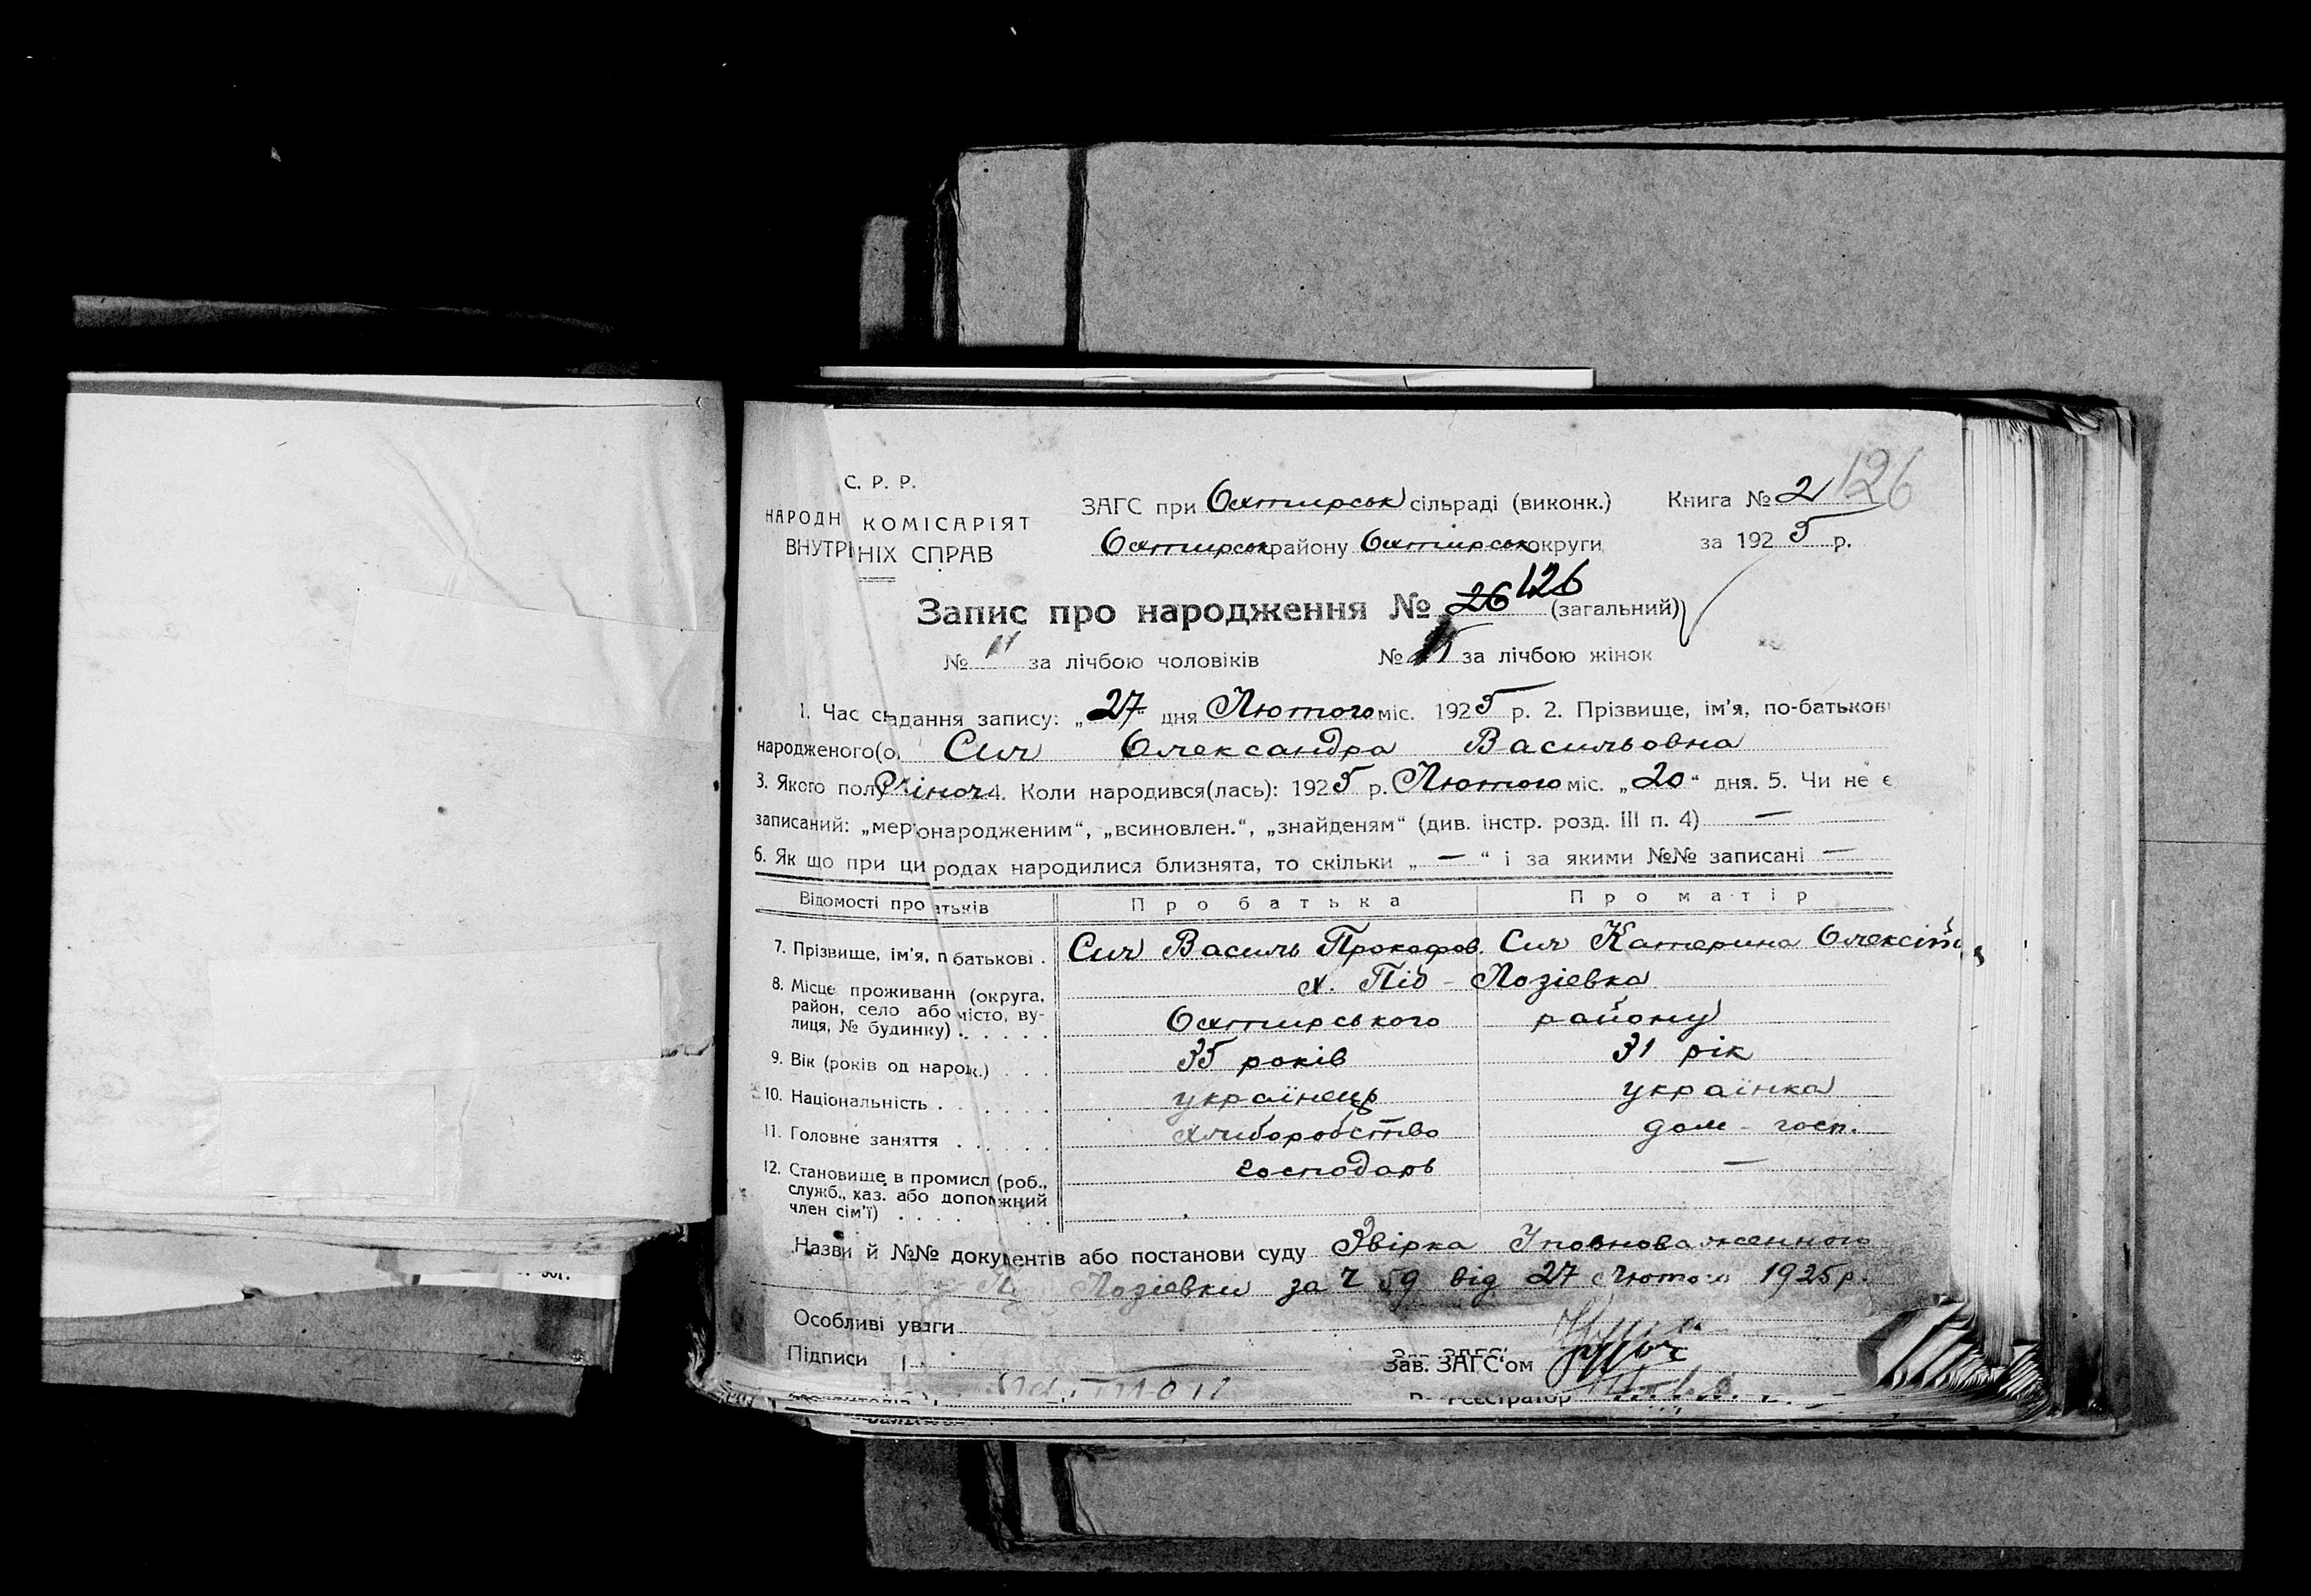 С. Р. Р.
НАРОДН КОМІСАРІЯТ
ВНУТРІНІХ СПРАВ
ЗАГС при Охтирськ сільраді (виконк.)
Охтирськ району Охтирськ округи
Книга № 2 126
за 1925 р.
Запис про народження № 26 126 (загальний)
№ 11 за лічбою чоловіків № 15 за лічбою жінок
1. Час складання запису: „27" дня Лютого міс. 1925 р. 2. Прізвище, ім'я, по-батькові
народженого(ої) Сич Олександра Васильовна
3. Якого полу жіноч 4. Коли народився(лась): 1925 р. Лютого міс. „20" дня. 5. Чи не є
записаний: „мертвонародженим", „всиновлен.", „знайденям" (див. інстр. розд. III п. 4) —
6. Як що при ци родах народилися близнята, то скільки „ — " і за якими №№ записані —
Відомості про батьків Про батька Про матір
7. Прізвище, ім'я, п батькові . Сич Василь Прокофов. Сич Катерина Олексіїв
8. Місце проживанн (округа, район, село або місто, вулиця, № будинку) х. Під - Лозіевка
Охтирського району
9. Вік (років од нарож.) 35 років 31 рік
10. Національність українець українка
11. Головне заняття хлиборобство дом - госп.
12. Становище в промисл (роб., служб., хаз. або допоможний член сім'ї) господарь —
Назви й №№ документів або постанови суду Звірка Уповноваженного
Лозіевки за ч 59 від 27 Лютого 1925 р.
Особливі уваги
Підписи
Зав. ЗАГС'ом
Реєстратор